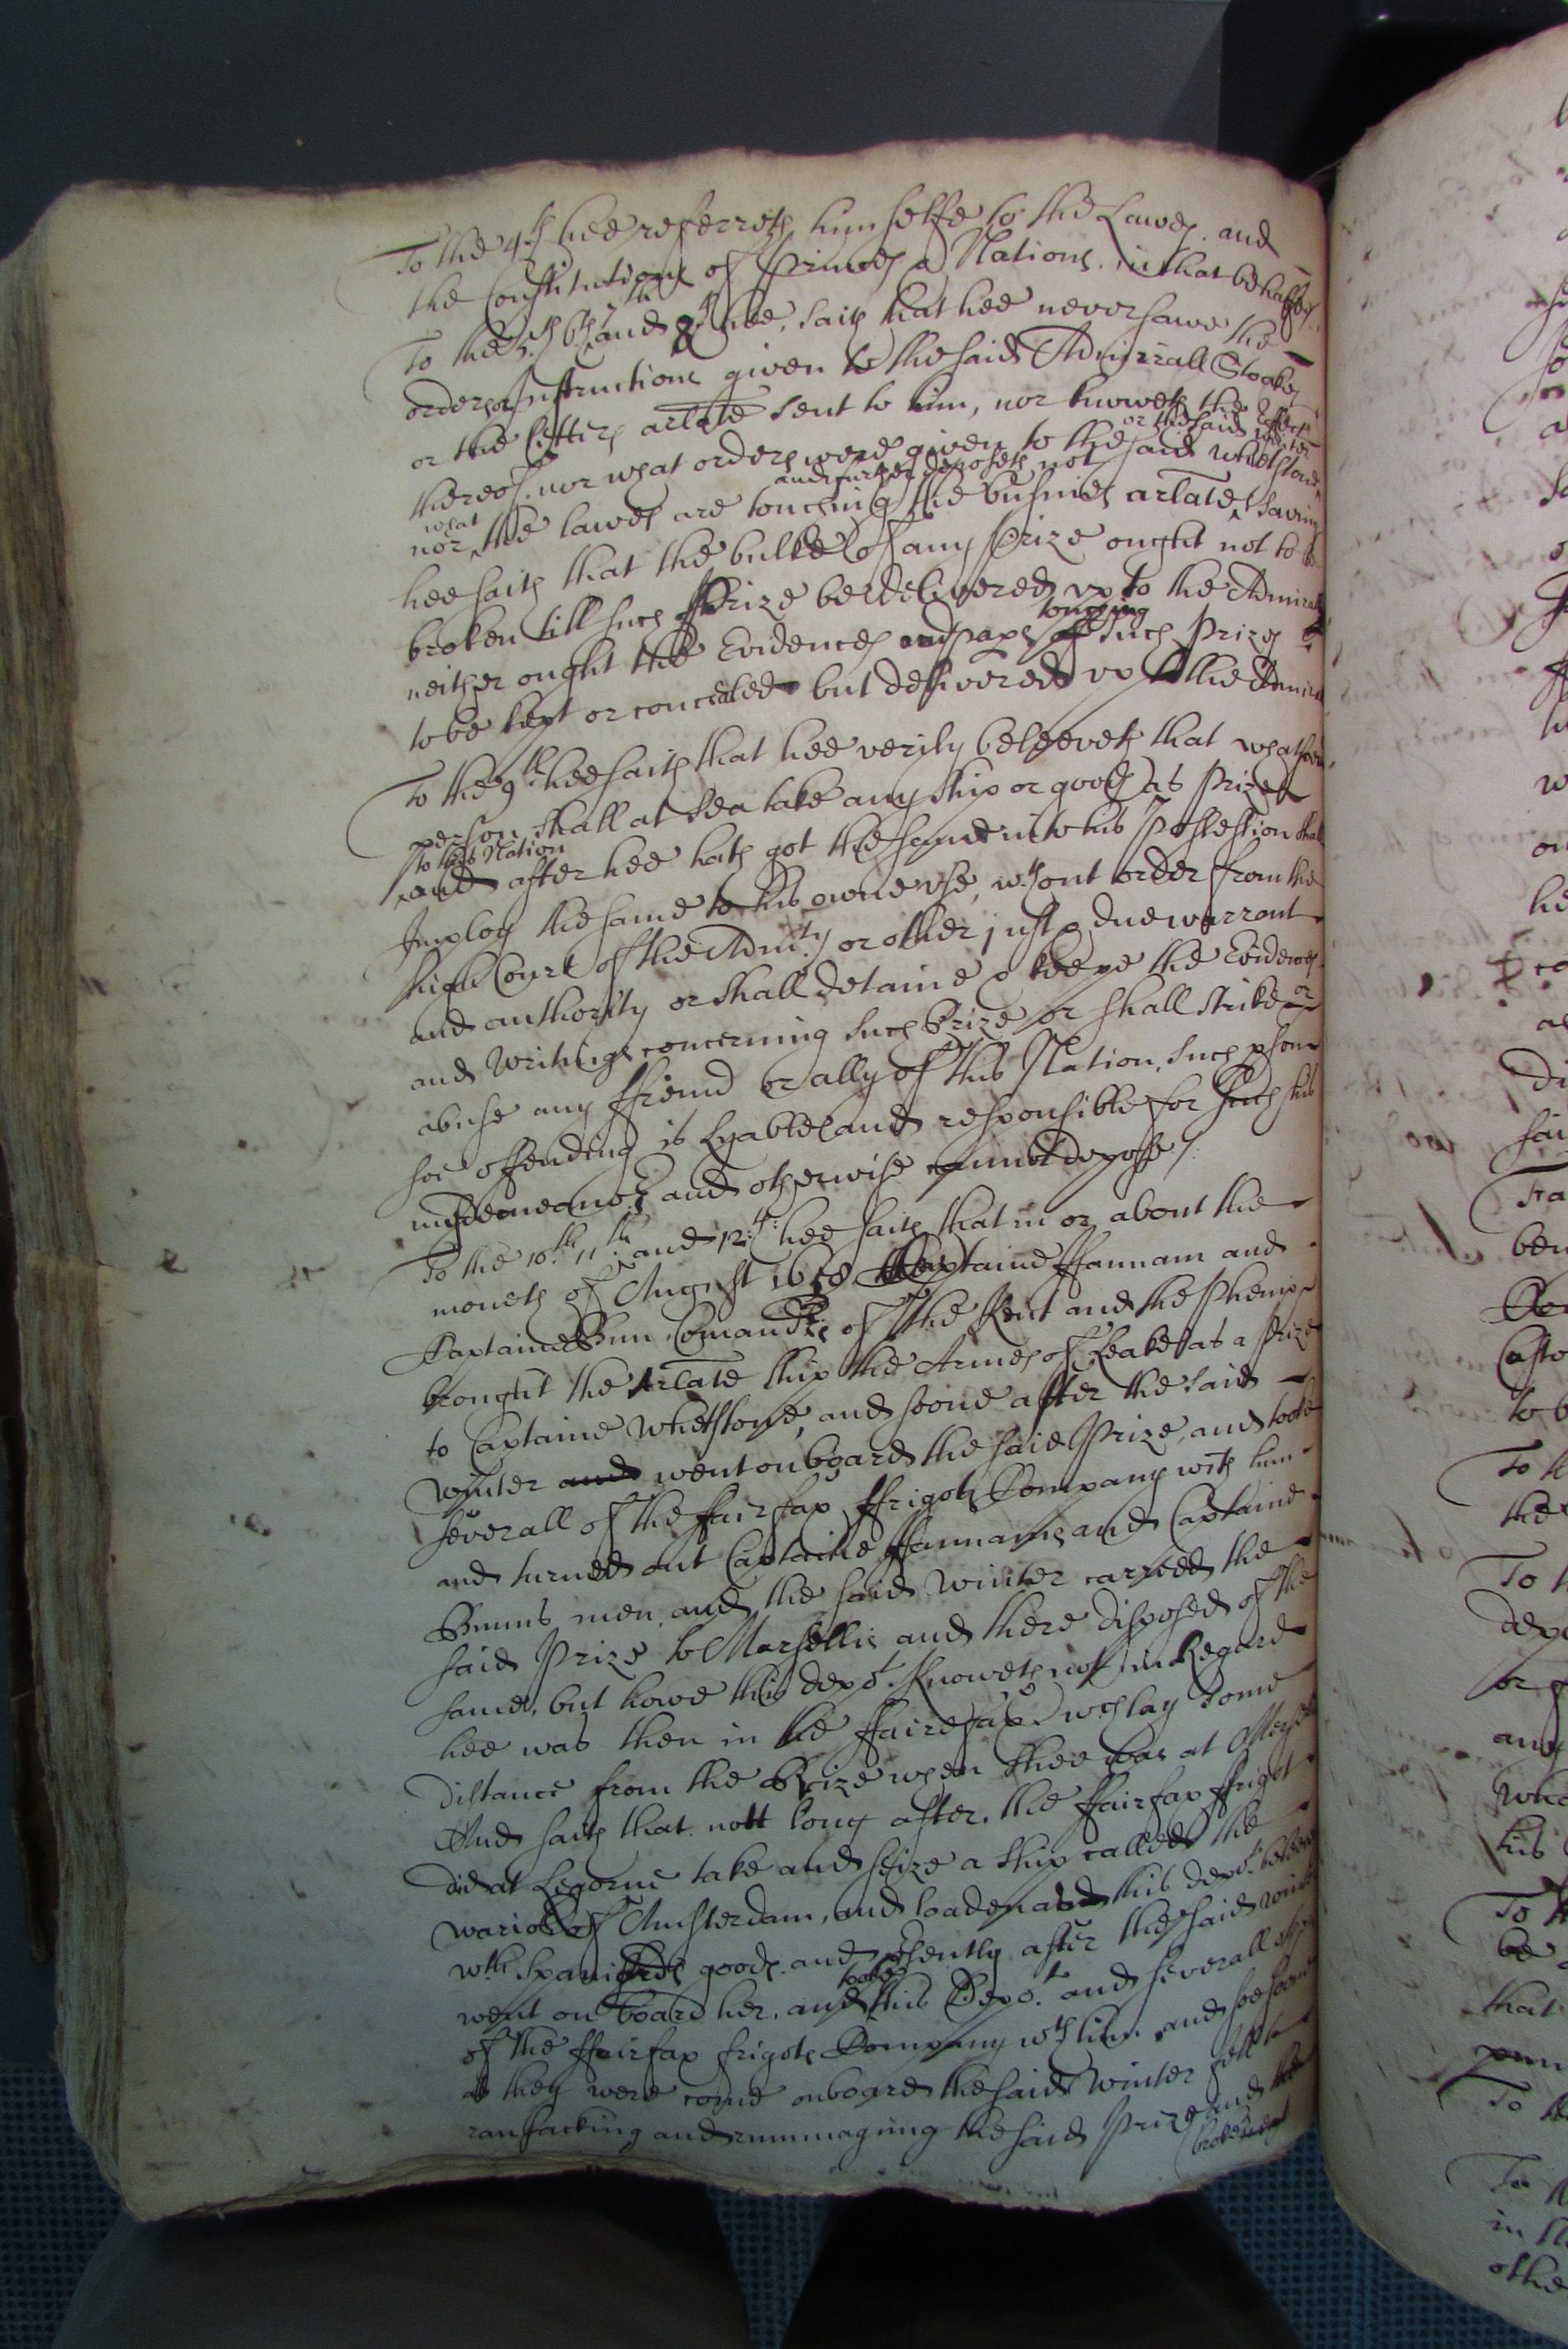 To the 4th hee referreth himselfe to the Lawes. and
the Constitutions of Princes & Nations. in that behalfe /.
To the 5th 6th 7th and 8th hee. saith that hee never sawe the
orders or Instructions given to the said Admirall Stoakes
or the Letters arlate sent to him, nor knoweth the Effect
thereof. nor what orders were given to the said Whetstone
or the said winter
nor what the lawes are touching the busines arlate, saving
and further deposeth not
hee saith that the bulke of any Prize ought not to be
broken till such Prize be delivered up to the Admiralty
neither ought the Evidences and papers touching such Prizes
to be kept or concealed but delivered up to the Admiralty
To the 9th hee saith that hee verily beleeveth that whatsoever
person, shall at Sea take any ship or goods as Prize
to this Nation
and after hee hath got the same into his Possession shall
Imploy the same to his owne use, wthout order from the
high Court of the Admlty or other just & due warrant
and authority or shall detaine & keepe the Evidences
and Writings concerning such Prize or shall strike or
abuse any ffriend or ally of this Nation, such pson
soe offending is Lyable and responsible for such his
misdemeanors and otherwise cannot depose /.
To the 10th 11th and 12th: hee saith that in or about the
moneth of August 1658 Captaine Hannam and
Captaine Bun Comandrs of the Kent and the Phenix
brought the Arlate ship the Armes of Leake as a Prize
to Captaine Whetstone, and soone after the said
Winter and went onboard the said Prize, and tooke
severall of the ffairfax ffrigots Company with him
and turned out Captaine Hannams and Captaine
Bunns men. and the said Winter carried the
said Prize to Marsellis and there disposed of the
same, but howe this depot. knoweth not in Regard
hee was then in the ffairefax wch lay some
distance from the Prize when shee was at
And saith that nott long after. the ffairfax ffrigot
did at Legorne take and seize a ship called the
of Amsterdam, and loaden as this depot. beleeveth
wth Spaniards goods. and presently after the said winter
went on board her. and tooke this Depot. and severall others
of the ffairfax frigots Company wth him. and soe soone
as they were come onboard the said Winter fell to
ransacking and rummaging the said Prize and